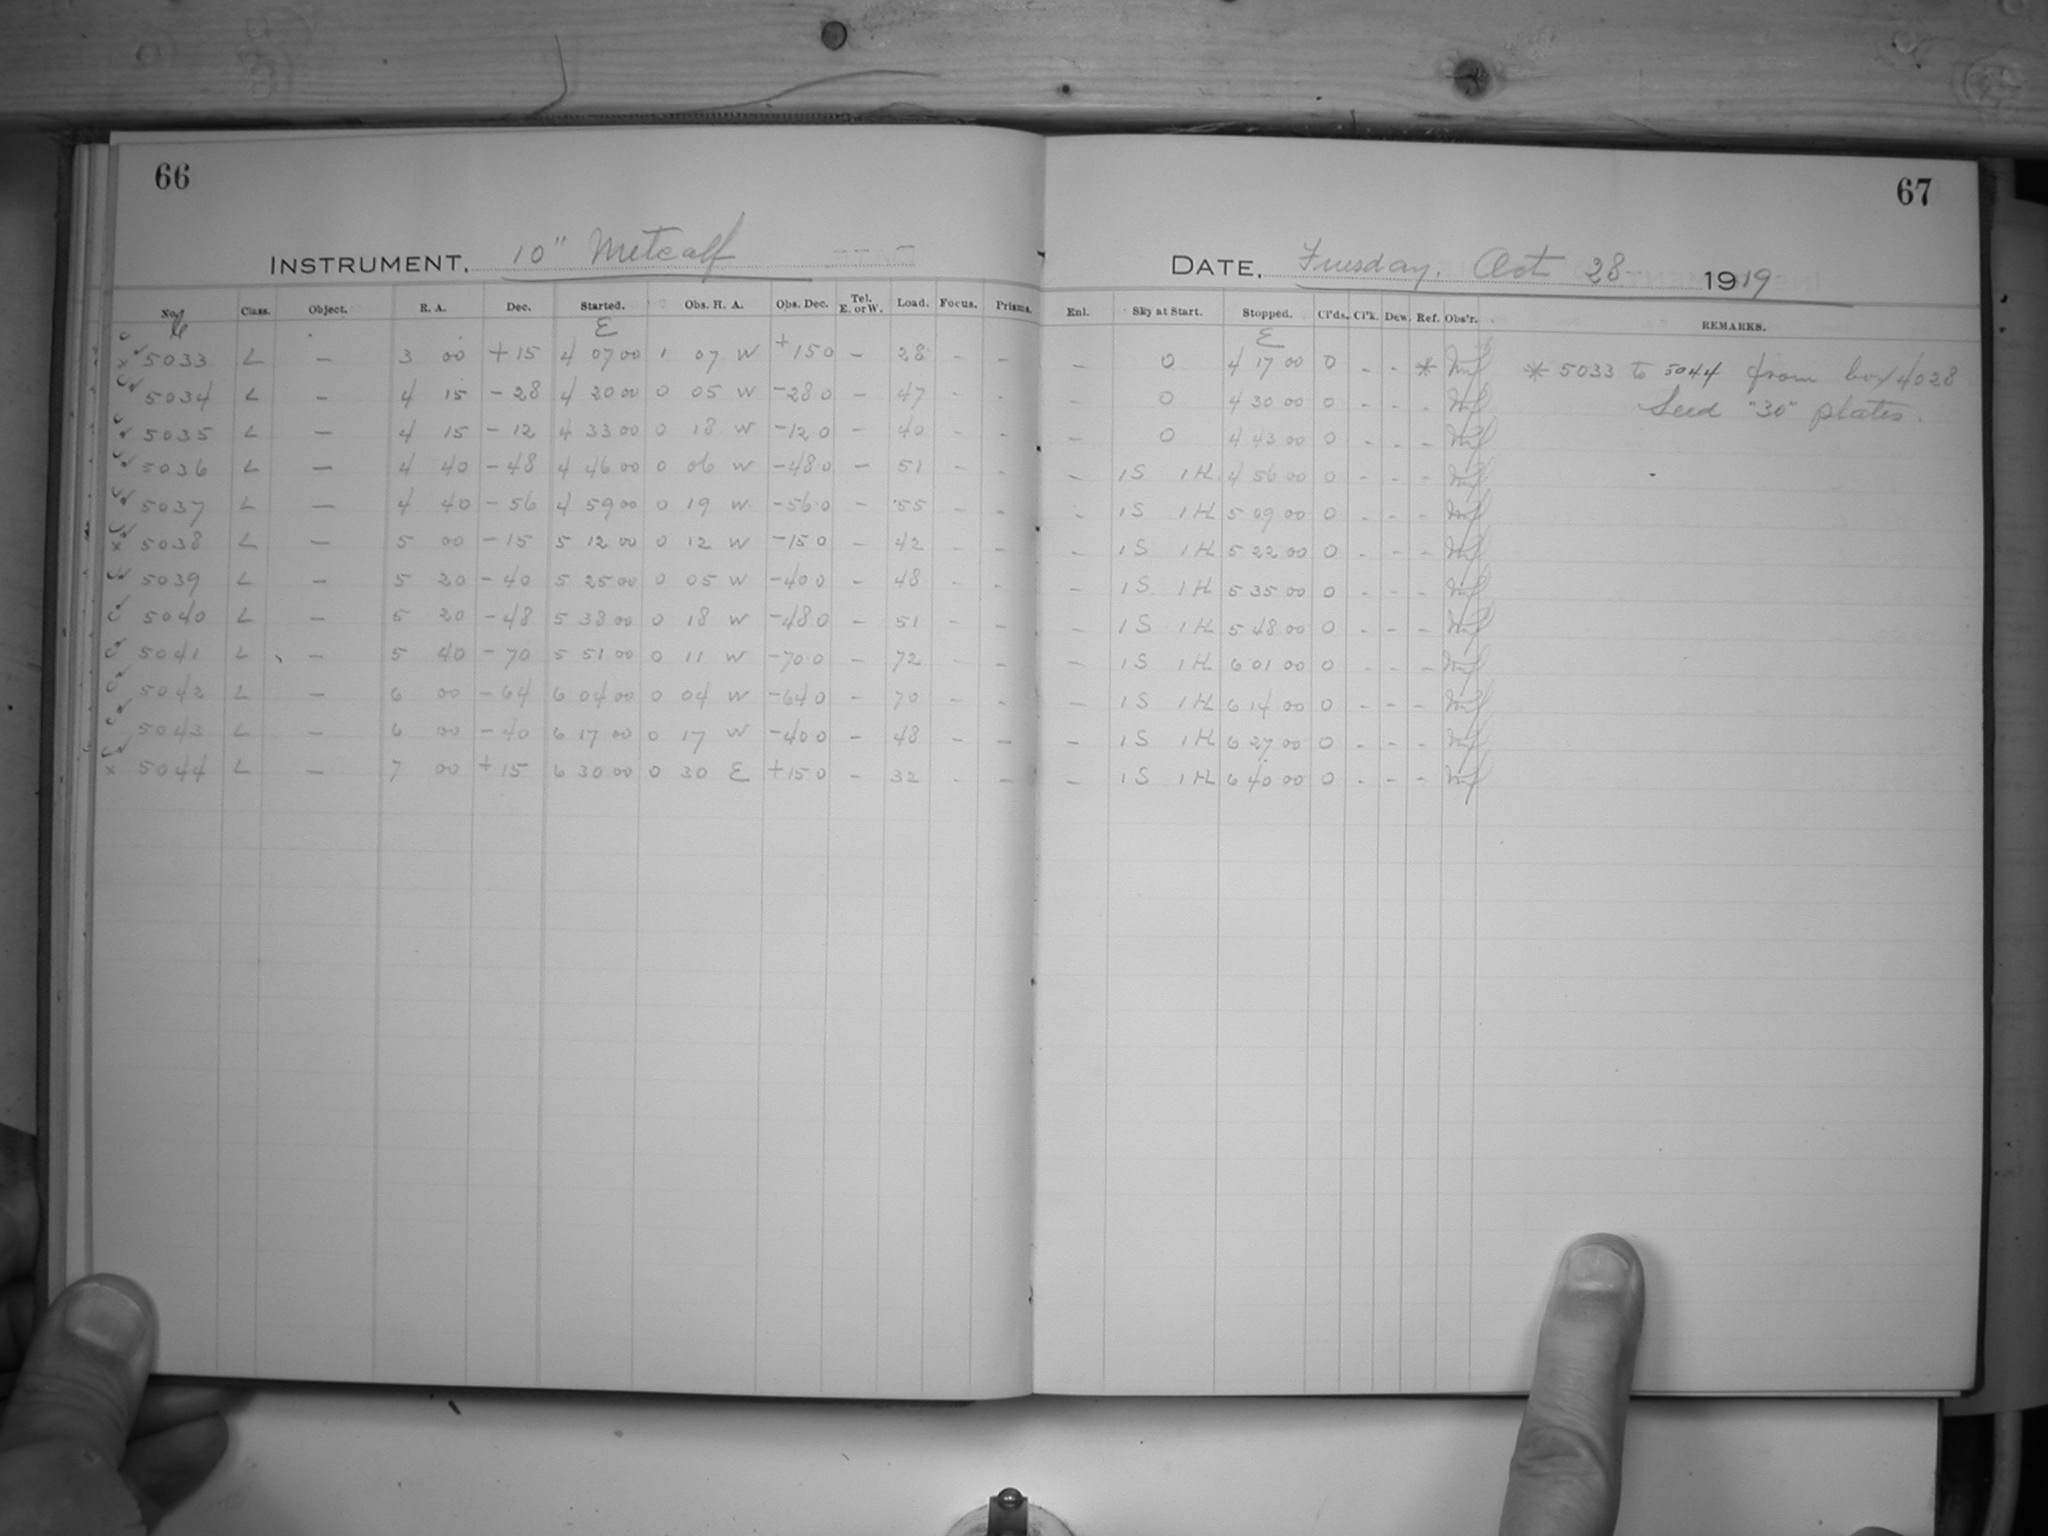 66
67
INSTRUMENT, 10" Metcalf
DATE, Tuesday, Oct 28 1919
No. Class. Object. R. A. Dec. Started. Obs. H. A. Obs. Dec. Tel. E. or W. Load. Focus. Prisms. Enl. Sky at Start. Stopped. Cl'ds. Cl'k. Dew. Ref. Obs'r. REMARKS.
E E
x 5033 L – 3 00 +15 4 07 00 1 07 W +15 0 – 28 – – – 0 4 17 00 0 - - * * 5033 to 5044 from box 4028
5034 L – 4 15 -28 4 20 00 0 05 W -28 0 – 47 – – – 0 4 30 00 0 - - - Seed "30" plates.
5035 L – 4 15 -12 4 33 00 0 18 W -12 0 – 40 – – – 0 4 43 00 0 - - -
5036 L – 4 40 -48 4 46 00 0 06 W -48 0 – 51 – – – 1S 1H 4 56 00 0 - - -
5037 L – 4 40 -56 4 59 00 0 19 W -56 0 – 55 – – – 1S 1H 5 09 00 0 - - -
x 5038 L – 5 00 -15 5 12 00 0 12 W -15 0 – 42 – – – 1S 1H 5 22 00 0 - - -
5039 L – 5 20 -40 5 25 00 0 05 W -40 0 – 48 – – – 1S 1H 5 35 00 0 - - -
5040 L – 5 20 -48 5 38 00 0 18 W -48 0 – 51 – – – 1S 1H 5 48 00 0 - - -
5041 L – 5 40 -70 5 51 00 0 11 W -70 0 – 72 – – – 1S 1H 6 01 00 0 - - -
5042 L – 6 00 -64 6 04 00 0 04 W -64 0 – 70 – – – 1S 1H 6 14 00 0 - - -
5043 L – 6 00 -40 6 17 00 0 17 W -40 0 – 48 – – – 1S 1H 6 27 00 0 - - -
x 5044 L – 7 00 +15 6 30 00 0 30 E +15 0 – 32 – – – 1S 1H 6 40 00 0 - - -